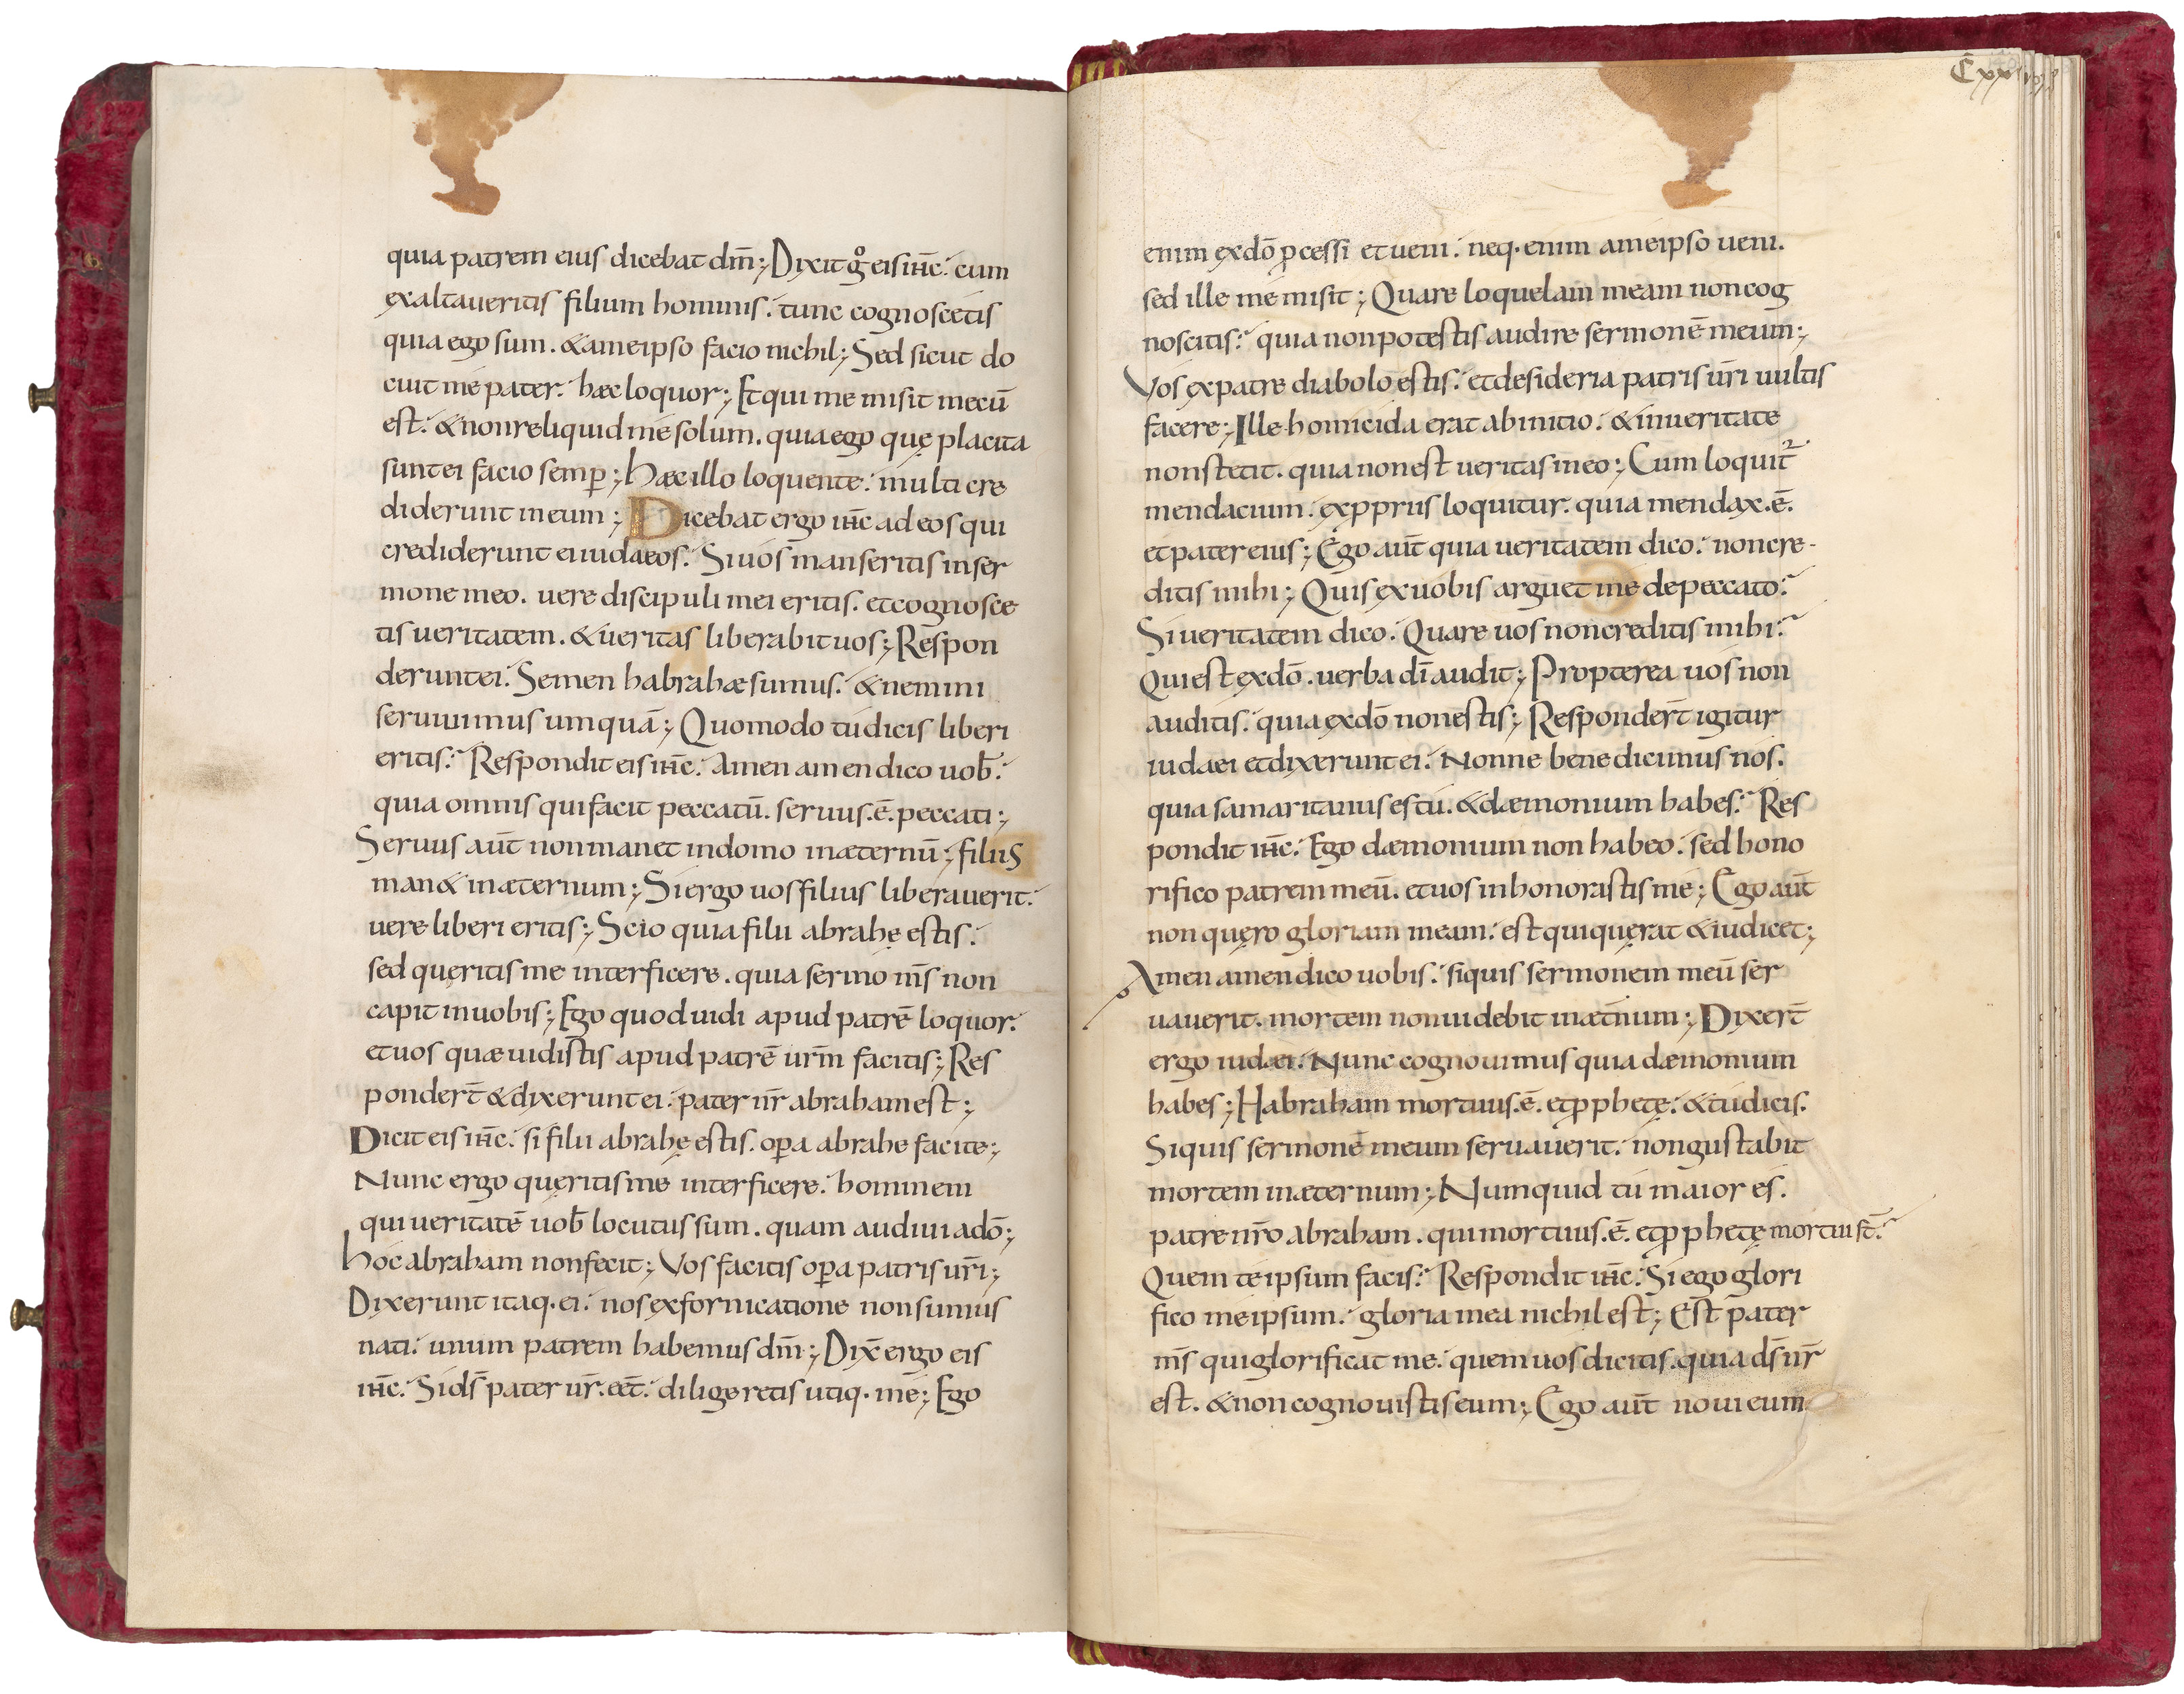 quia patrem eius dicebat dm̄; Dixit gͦ eis ih̄c: cum
exaltaueritis filium hominis: tunc cognoscetis
quia ego sum. & a me ipso facio nichil; Sed sicut do
cuit me pater: hæc loquor; Et qui me misit mecū
est: & non reliquid me solum. quia ego quę placita
sunt ei facio semꝑ; Hæc illo loquente: multi cre
diderunt in eum; Dicebat ergo ih̄c ad eos qui
crediderunt ei iudaeos: Si uos manseritis in ser
mone meo. uere discipuli mei eritis. et cognosce
tis ueritatem. & ueritas liberabit uos; Respon
derunt ei: Semen habrahæ sumus: & nemini
seruiuimus umquā; Quomodo tu dicis liberi
eritis? Respondit eis ih̄c: Amen amen dico uob̄:
quia omnis qui facit peccatū. seruus .ē. peccati;
Seruus aūt non manet in domo in æternū; filius
man& in æternum; Si ergo uos filius liberauerit:
uere liberi eritis; Scio quia filii abrahę estis:
sed queritis me interficere. quia sermo m̄s non
capit in uobis; Ego quod uidi apud patrē loquor:
et uos quæ uidistis apud patrē urm̄ facitis; Res
ponder̄t & dixerunt ei: pater nr̄ abraham est;
Dicit eis ih̄c: si filii abrahę estis. oꝑa abrahe facite;
Nunc ergo quęritis me interficere: hominem
qui ueritatē uob̄ locutus sum. quam audiui a dō;
Hoc abraham non fecit; Vos facitis oꝑa patris ur̄i;
Dixerunt itaq· ei: nos ex fornicatione non sumus
nati: unum patrem habemus dm̄; Dix̄ ergo eis
ih̄c: Si ds̄ pater ur̄. eēt: diligeretis utiq· me; Ego
Cxxi
enim ex dō ꝓcessi et ueni: neq· enim a me ipso ueni.
sed ille me misit; Quare loquelam meam non cog
noscitis? quia non potestis audire sermonē meum;
Vos ex patre diabolo estis: et desideria patris ur̄i uultis
facere; Ille homicida erat ab initio: & in ueritate
non stetit. quia non est ueritas in eo; Cum loquit᷑
mendacium: ex ꝓpriis loquitur. quia mendax .ē.
et pater eius; Ego aūt quia ueritatem dico: non cre-
ditis mihi; Quis ex uobis arguet me de peccato?
Si ueritatem dico: Quare uos non creditis mihi?
Qui est ex dō. uerba dī audit; Propterea uos non
auditis: quia ex dō non estis; Responder̄t igitur
iudaei et dixerunt ei: Nonne bene dicimus nos.
quia samaritanus es tu. & dæmonium habes? Res
pondit ih̄c: Ego dæmonium non habeo: sed hono
rifico patrem meū. et uos inhonorastis me; Ego aūt
non quęro gloriam meam: est qui quęrat & iudicet;
Amen amen dico uobis: siquis sermonem meū ser
uauerit. mortem non uidebit in æt̄num; Dixer̄t
ergo iudæi: Nunc cognouimus quia dæmonium
habes; Habraham mortuus .ē. et ꝓphetę: & tu dicis.
Siquis sermonē meum seruauerit: non gustabit
mortem in æternum; Numquid tu maior es.
patre nr̄o abraham. qui mortuus .ē. et ꝓphetę mortui st̄?
Quem te ipsum facis? Respondit ih̄c: Si ego glori
fico me ipsum: gloria mea nichil est; Est pater
m̄s qui glorificat me: quem uos dicitis. quia ds̄ nr̄
est. & non cognouistis eum; Ego aūt noui eum